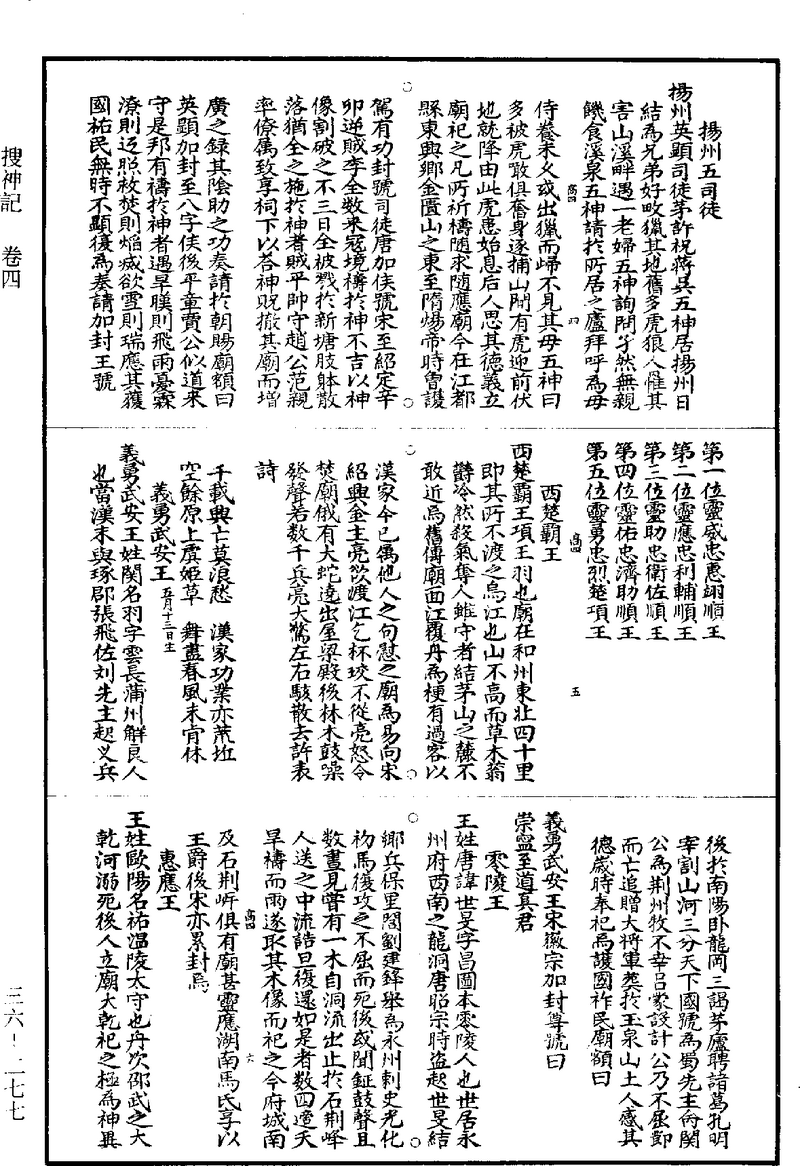 搜神記 卷四
三六—二七七
揚州五司徒
揚州英顯司徒茅許祝蔣吳五神居揚州日
結為兄弟好畋獵其地舊多虎狼人罹其
害山溪畔遇一老婦五神詢問孑然無親
饑食溪泉五神請於所居之廬拜呼為母
侍養未久或出獵而歸不見其母五神曰
多被虎噉俱奮身逐捕山間有虎迎前伏
地就降由此虎患始息后人思其德義立
廟祀之凡所祈禱隨求隨應廟今在江都
縣東興鄉金匱山之東至隋煬帝時曾護
駕有功封號司徒唐加侯號宋至紹定辛
卯逆賊李全數來寇境禱於神不吉以神
像割破之不三日全被戮於新塘肢躰散
落猶全之施於神者賊平帥守趙公范親
率僚屬致享祠下以荅神貺撤其廟而增
廣之録其陰助之功奏請於朝賜廟額曰
英顯加封至八字侯後平章賈公似道來
守是邦有禱於神者遇旱暵則飛雨憂霖
潦則返照救焚則焰滅欲雪則瑞應其護
國祐民無時不顯復為奏請加封王號
第一位靈威忠惠翊順王
第二位靈應忠利輔順王
第三位靈助忠衛佐順王
第四位靈佑忠濟助順王
第五位靈勇忠烈楚項王
西楚霸王
西楚霸王項王羽也廟在和州東北四十里
即其所不渡之烏江也山不高而草木蓊
欝冷然殺氣奪人雖守者結茅山之麓不
敢近焉舊傳廟面江覆丹為梗有過客以
漢家今已屬他人之句慰之廟為易向宋
紹興金主亮欲渡江乞杯珓不從亮怒令
焚廟俄有大蛇遶出屋梁殿後林木鼓噪
發聲若數千兵亮大驚左右駭散去許表
詩
千載興亡莫浪愁 漢家功業亦荒坵
空餘原上虞姬草 舞盡春風未肯休
義勇武安王 五月十三日生
義勇武安王姓関名羽字雲長蒲州解良人
也當漢末與琢郡張飛佐刘先主起义兵
後於南陽卧龍岡三謁茅廬聘諸葛孔明
宰割山河三分天下國號為蜀先主命関
公為荆州牧不幸吕蒙設計公乃不屈節
而亡追贈大將軍葬於玉泉山土人感其
德歲時奉祀為護國祚民廟額曰
義勇武安王宋徽宗加封尊號曰
崇寧至道真君
零陵王
王姓唐諱世旻字昌圖本零陵人也世居永
州府西南之龍洞唐昭宗時盜起世旻結
鄉兵保里閭劉建鋒舉為永州刺史光化
初馬復攻之不屈而死後或聞鉦鼓聲且
數晝見嘗有一木自洞流出止於石荆峰
人送之中流詰旦復還如是者數四適天
旱禱而雨遂取其木像而祀之今府城南
及石荆岓俱有廟甚靈應湖南馬氏享以
王爵後宋亦累封焉
惠應王
王姓歐陽名祐温陵太守也丹次邵武之大
乾河溺死後人立廟大乾祀之極為神異